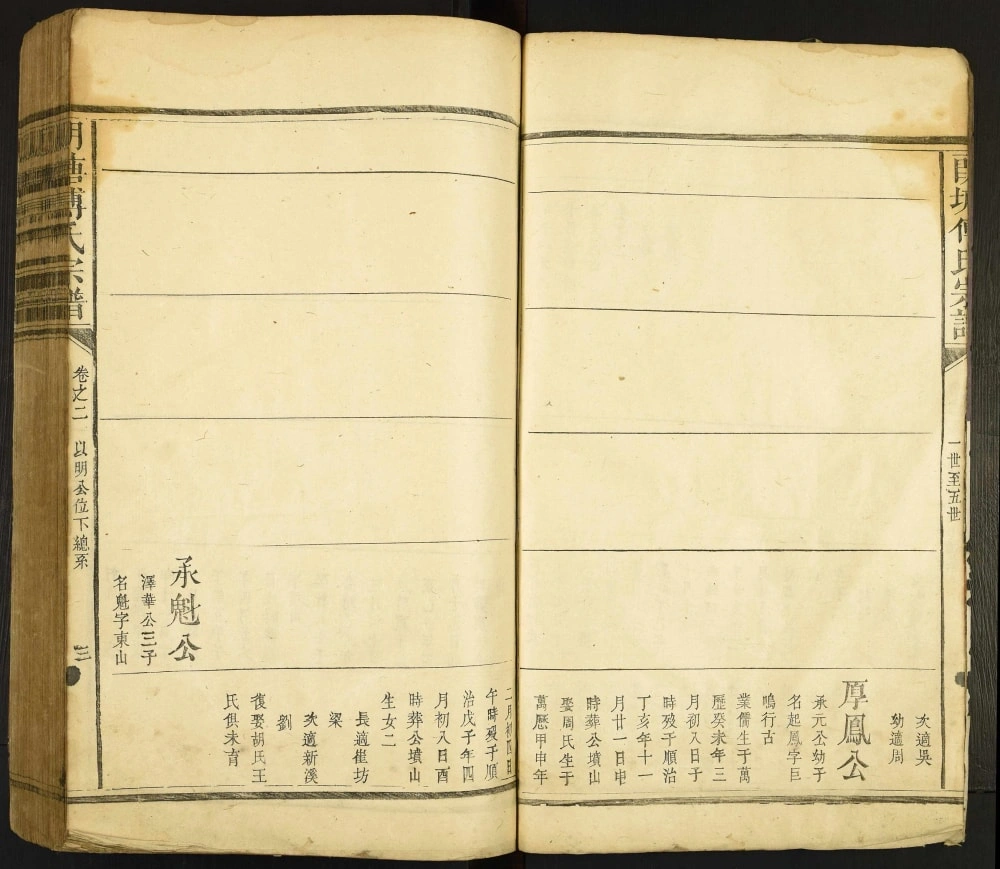 一世至五世
次適吳
幼適周
厚鳳公
承元公幼子
名起鳳字巨
鳴行古
業儒生于萬
歷癸未年三
月初八日子
時歿于順治
丁亥年十一
月廿一日申
時葬公墳山
娶周氏生于
萬歷甲申年
二月初四日
午時歿于順
治戊子年四
月初八日酉
時葬公墳山
生女二
長適崔坊
梁
次適新溪
劉
復娶胡氏王
氏俱未育
承魁公
澤華公三子
名魁字東山
傅氏宗譜
卷之二
以明公位下總系
三